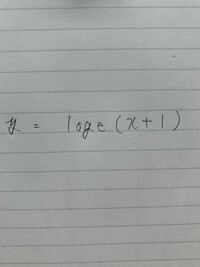 y = log e (x+1)